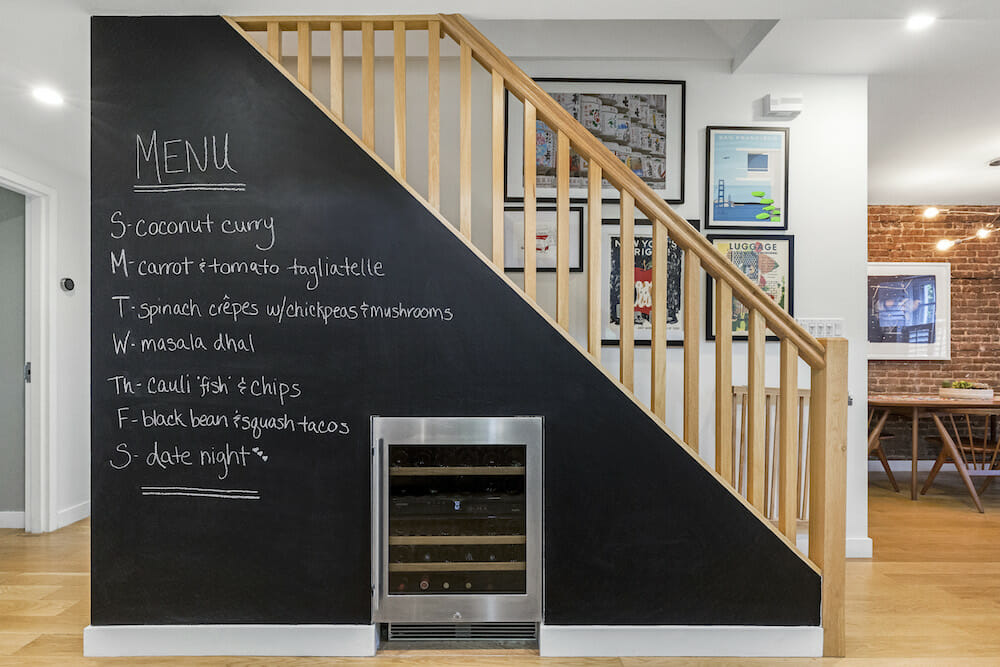 MENU
S-coconut curry
M-carrot & tomato tagliatelle
T-spinach crêpes w/chickpeas & mushrooms
W-masala dhal
Th-cauli 'fish' & chips
F-black bean & squash tacos
S-date night
LUGGAGE